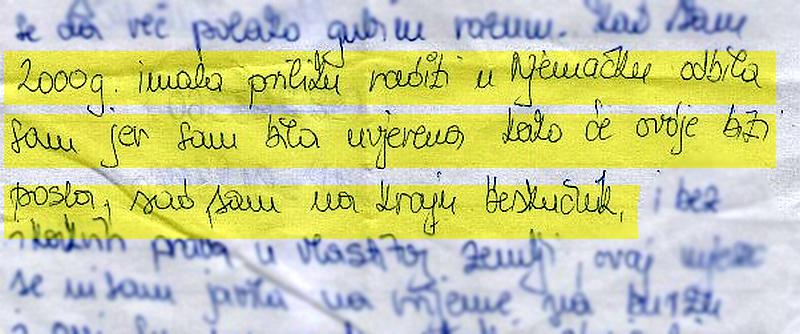 se da već polako gubim razum. Kad sam
2000g. imala priliku raditi u Njemačku odbila
sam jer sam bila uvjerena kako će ovdje biti
posla, sad sam na kraju beskućnik, i bez
ikakvih prava u vlastitoj zemlji, ovaj mjesec
se nisam javila na vrijeme na burzu